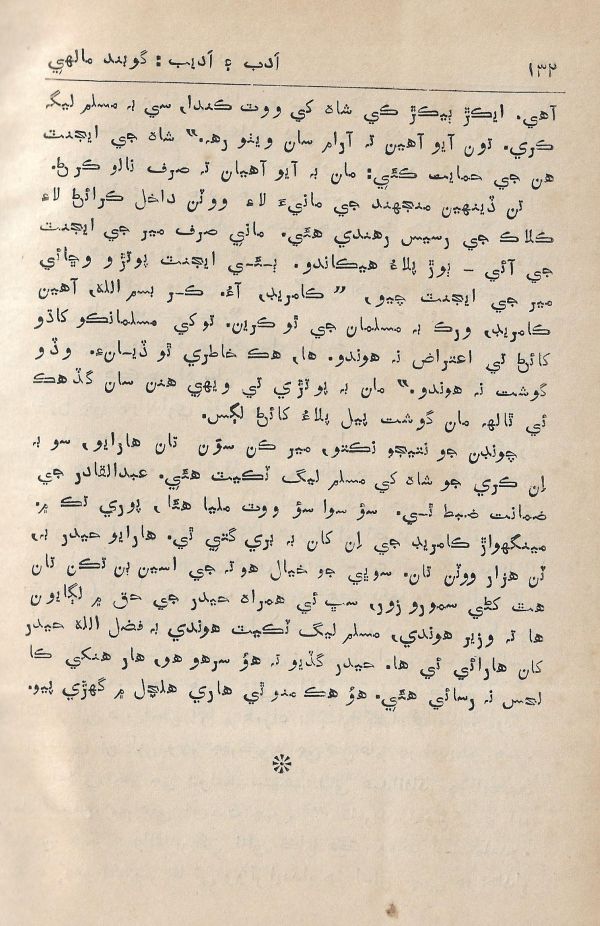 ۱۳۲ اَدب ۽ اَديب : گوبند مالهي
آهي. ايڪڙ ٻيڪڙ ڪي شاه کي ووٽ ڪندا، سي به مسلم ليگ
ڪري. تون آيو آهين ته آرام سان ويٺو رهه.” شاه جي ايجنٽ
هن جي حمايت ڪئي: مان به آيو آهيان ته صرف نالو ڪرڻ.
ٽن ڏينهين منجهند جي مانيءَ لاءِ ووٽن داخل ڪرائڻ لاءِ
ڪلاڪ جي رسيس رهندي هئي. ماني صرف مير جي ايجنٽ
جي آئي – ٻوڙ پلاءُ هيڪاندو. ٻـئـي ايجنٽ پوٽڙو وڇائي
مير جي ايجنٽ چيو، ” ڪامريڊ، آءُ. ڪـر بسم الله، آهين
ڪامريڊ، ورڪ به مسلمان جي ٿو ڪرين. توکي مسلمانڪو کاڌو
کائڻ تي اعتراض نه هوندو. ها، هڪ خاطري ٿو ڏيـانءِ. وڏو
گوشت نه هوندو.” مان به پوٽڙي تي ويهي هنن سان گڏ هڪ
ئي ٿالهه مان گوشت پيل پلاءُ کائڻ لڳس.
چونڊن جو نتيجو نڪتو، مير ڪن سؤن تان هارايو، سو به
اِن ڪري جو شاه کي مسلم ليگ ٽڪيٽ هئي. عبدالقادر جي
ضمانت ضبط ٿـي. سؤ سوا سؤ ووٽ مليا هئا، پوري تڪ ۾.
مينگهواڙ ڪامريڊ جي اِن کان به بري گتي ٿي. هارايو حيدر به،
ٽن هزار ووٽن تان. سوڀي جو خيال هو ته جي اسين ٻن تڪن تان
هٿ کڻي سمورو زور، سڀ ئي همراه حيدر جي حق ۾ لڳايون
ها ته وزير هوندي، مسلم ليگ ٽڪيٽ هوندي به فضل الله حيدر
کان هارائي ئي ها. حيدر گڏيو ته هؤ سرهو هو، هار هنکي ڪا
لهس نه رسائي هئي. هؤ هڪ منو ٿي هاري هلچل ۾ گهڙي پيو.